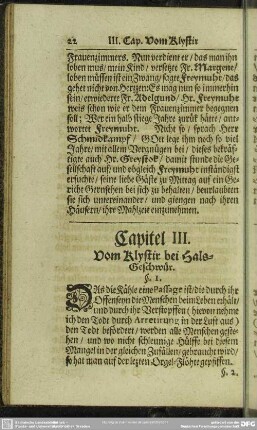 22 III. Cap. Vom Klystir
Frauenzimmers. Nun verdienet er / das man ihn
loben mus / mein Kind / versetzte Fr. Margene /
loben müssen ist ein Zwang / sagte Freymuhr / das
gehet nicht von Hertzen. Es mag nun so immerhin
sein / erwiederte Fr. Adelgund / Hr. Freymuhr
weis schon wie er dem Frauenzimmer begegnen
soll; Wer ein halb stiege Jahre zurük hätte / ant-
wortet Freymuhr. Nicht so / sprach Herr
Schmidkampf / GOtt lege ihm noch so viel
Jahre / mit allem Vergnügen bei / dieses bekräf-
tigte auch Hr. Greystok / damit stunde die Ge-
sellschaft auf / und obgleich Freymuhr inständigst
ersuchte / seine liebe Gäste zu Mittag auf ein Ge-
richt Gernsehen bei sich zu behalten / beurlaubten
sie sich untereinander / und giengen nach ihren
Häusern / ihre Mahlzeit einzunehmen.
Capitel III.
Vom Klystir bei Hals-
Geschwür.
§. 1.
DAs die Kähle eine Passage ist / die durch ihr
Offenseyn die Menschen beim Leben erhält /
und durch ihr Verstopffen (hievor nehme
ich den Todt durch Arretirung in der Luft aus)
den Todt befördert / werden alle Menschen geste-
hen / und wo nicht schleunige Hülffe bei diesem
Mangel in der gleichen Zufällen / gebraucht wird /
so hat man auf der letzten Orgel-Flöhte gepfiffen.
§. 2.